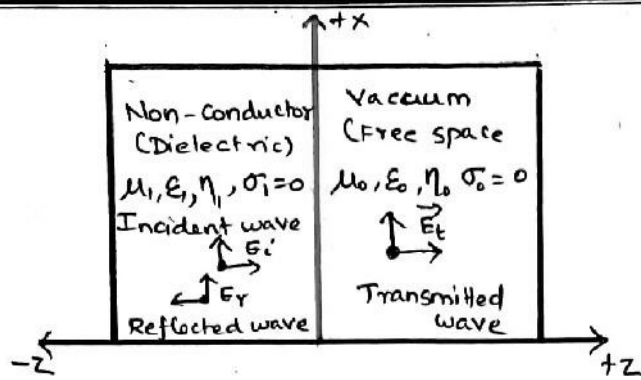 +x
Non-Conductor
(Dielectric)
μ₁, ε₁, η₁, σ₁=0
Incident wave
Ei
Er
Reflected wave
Vaccum
(Free space
μ₀, ε₀, η₀ σ₀=0
Et
Transmitted
wave
-z
+z